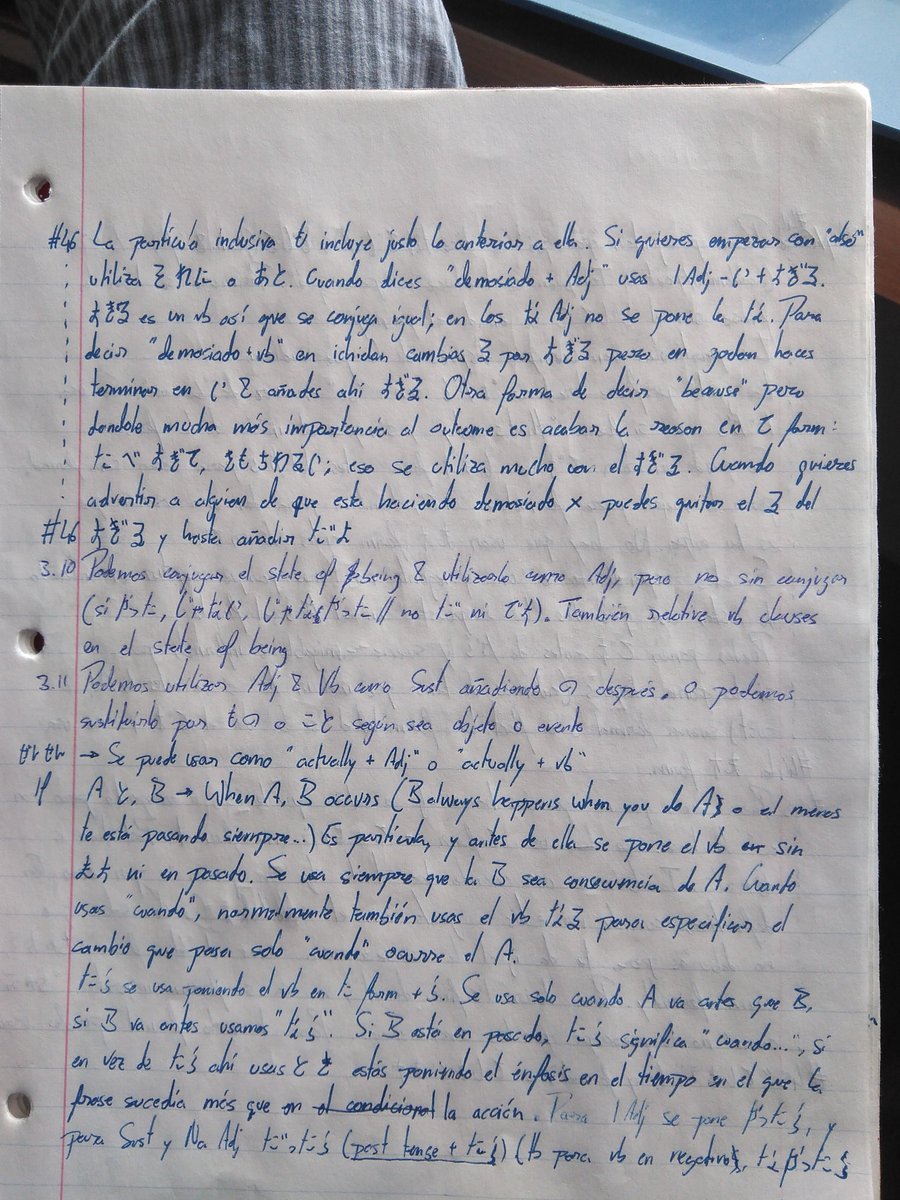 #46 La partícula inclusiva も incluye justo lo anterior a ella. Si quieres empezar con "also"
utiliza それに o あと. Cuando dices "demasiado + Adj" usas I Adj - い + すぎる.
すぎる es un vb así que se conjuga igual; en los な Adj no se pone la な. Para
decir "demasiado + vb" en ichidan cambias る por すぎる pero en godan haces
terminar en い & añades ahí すぎる. Otra forma de decir "because" pero
dandole mucha más importancia al outcome es acabar la reason en て form:
たべすぎて, きもちわるい; eso se utiliza mucho con el すぎる. Cuando quieres
advertir a alguien de que esta haciendo demasiado x puedes quitar el る del
#46 すぎる y hasta añadir だよ
3.10 Podemos conjugar el state of being & utilizarlo como Adj, pero no sin conjugar
(si だった, じゃない, じゃなかった // no だ ni です). También relative vb clauses
en el state of being
3.11 Podemos utilizar Adj & Vb como Sust añadiendo の después. o podemos
sustituirlo por もの o こと según sea objeto o evento
→ Se puede usar como "actually + Adj" o "actually + vb"
If A と, B → When A, B occurs (B always happens when you do A o al menos
te está pasando siempre...) Es partícula, y antes de ella se pone el vb en sin
ます ni en pasado. Se usa siempre que la B sea consecuencia de A. Cuanto
usas "cuando", normalmente también usas el vb なる para especificar el
cambio que pasa solo "cuando" ocurre el A.
たら se usa poniendo el vb en た form + ら. Se usa solo cuando A va antes que B,
si B va antes usamos "なら". Si B está en pasado, たら significa "cuando...", si
en vez de たら ahí usas とき estás poniendo el énfasis en el tiempo en el que la
frase sucedía más que en el condicional la acción. Para I Adj se pone かったら, y
para Sust y Na Adj だったら (past tense + たら) (& para vb en negativo, なかったら